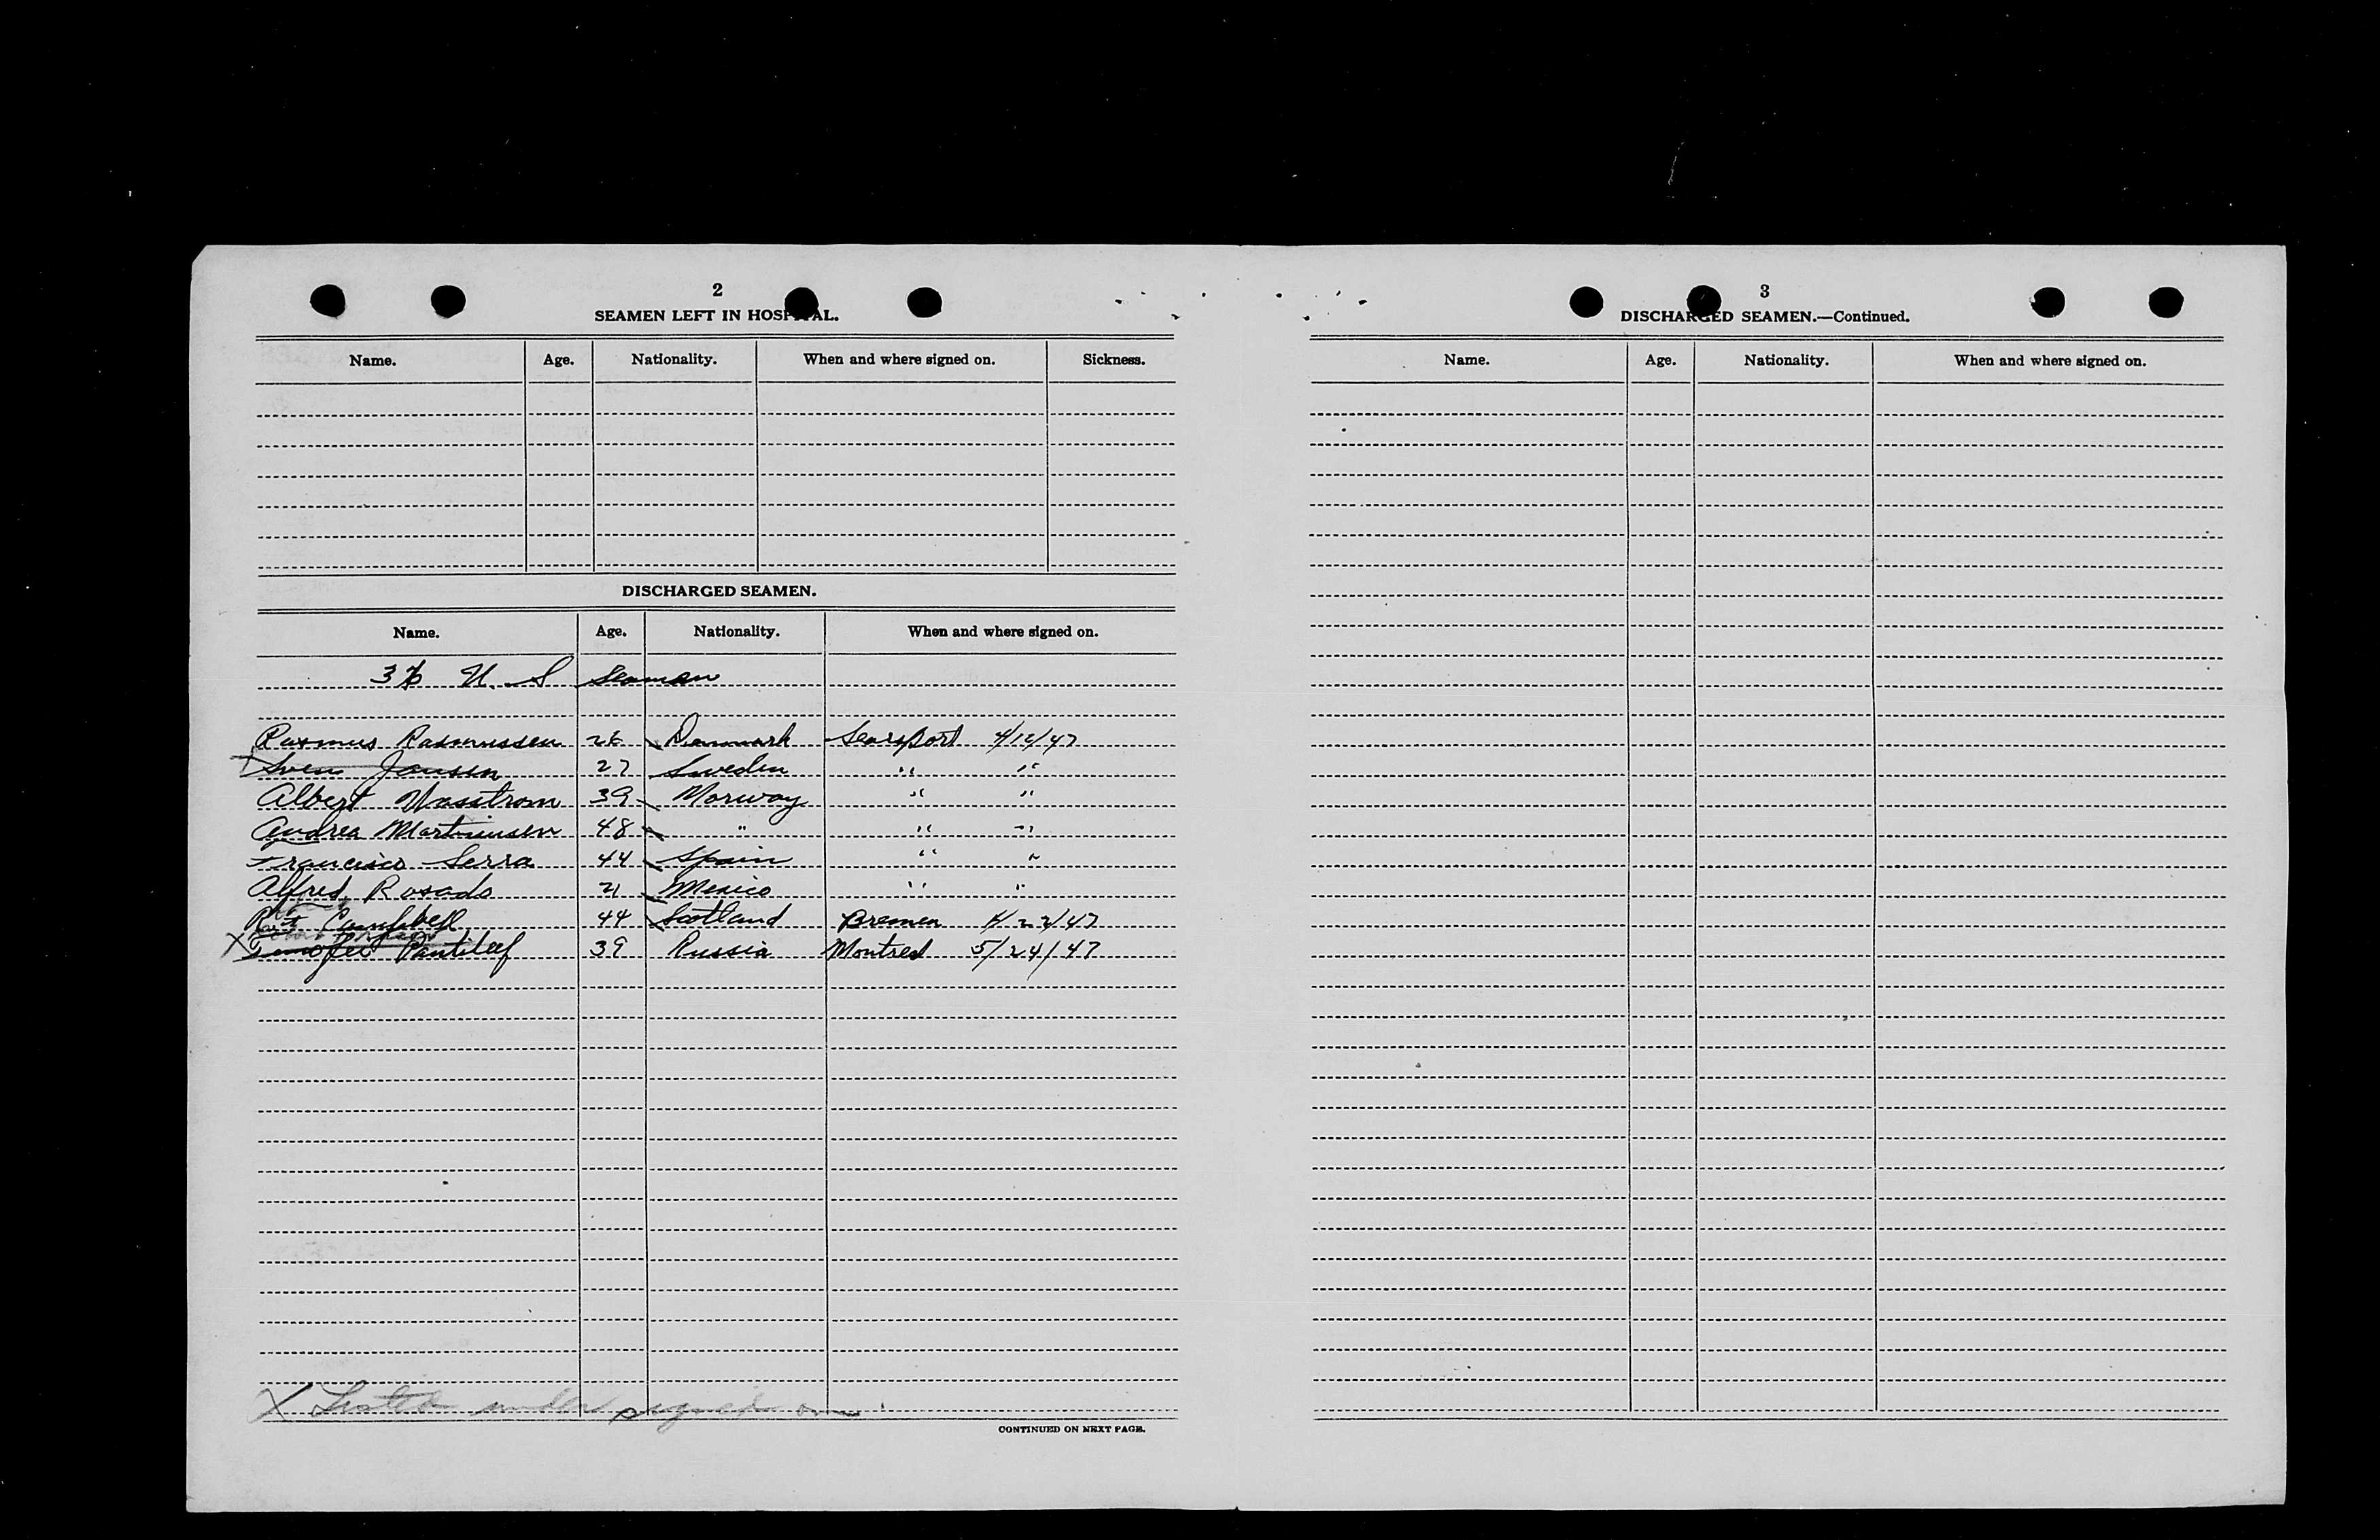 2
SEAMEN LEFT IN HOSPITAL.
Name. Age. Nationality. When and where signed on. Sickness.
DISCHARGED SEAMEN.
Name. Age. Nationality. When and where signed on.
U. S Seamen
Rasmus Rasmussen 26 Denmark Searsport 4/12/47
Sven Jansen 27 Sweden " "
Albert Nasstrom 39 Norway " "
Andrea Martinusen 48 " " "
Francisco Serra 44 Spain " "
Alfred Rosado 21 Mexico " "
Campbell 44 Scotland Bremen 4/22/47
X Timofei Pantileef 39 Russia Montreal 5/24/47
X Listed under signed on
CONTINUED ON NEXT PAGE.
3
DISCHARGED SEAMEN.—Continued.
Name. Age. Nationality. When and where signed on.